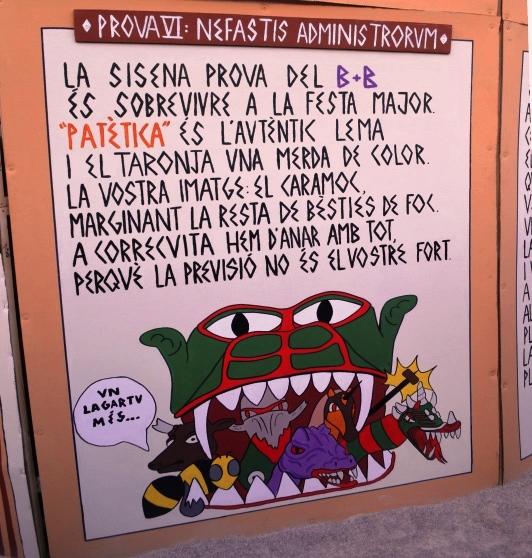 PROVA VI: NEFASTIS ADMINISTRORVM
LA SISENA PROVA DEL B+B
ÉS SOBREVIVRE A LA FESTA MAJOR.
"PATÈTICA" ÉS L'AVTÈNTIC LEMA
I EL TARONJA VNA MERDA DE COLOR.
LA VOSTRA IMATGE: EL CARAMOC,
MARGINANT LA RESTA DE BÈSTIES DE FOC.
A CORRECVITA HEM D'ANAR AMB TOT,
PERQVÈ LA PREVISIÓ NO ÉS EL VOSTRE FORT.
VN
LAGARTV
MÉS...